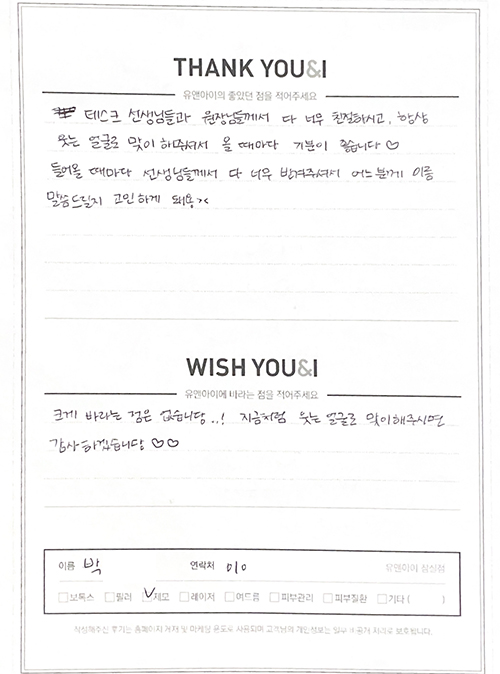 THANK YOU&I
유앤아이의 좋았던 점을 적어주세요
테스크 선생님들과 원장님들께서 다 너무 친절하시고, 항상
웃는 얼굴로 맞이 해주셔서 올 때마다 기분이 좋습니다 ♡
들어올 때마다 선생님들께서 다 너무 반겨주셔서 어느분께 이름
말씀드릴지 고민하게 돼용><
WISH YOU&I
유앤아이에 바라는 점을 적어주세요
크게 바라는 점은 없습니당..! 지금처럼 웃는 얼굴로 맞이해주시면
감사하겠습니당 ♡♡
이름 박 연락처 010 유앤아이 잠실점
□보톡스 □필러 ☑제모 □레이저 □여드름 □피부관리 □피부질환 □기타 ( )
작성해주신 후기는 홈페이지 게재 및 마케팅 용도로 사용되며 고객님의 개인정보는 일부 비공개 처리로 보호됩니다.